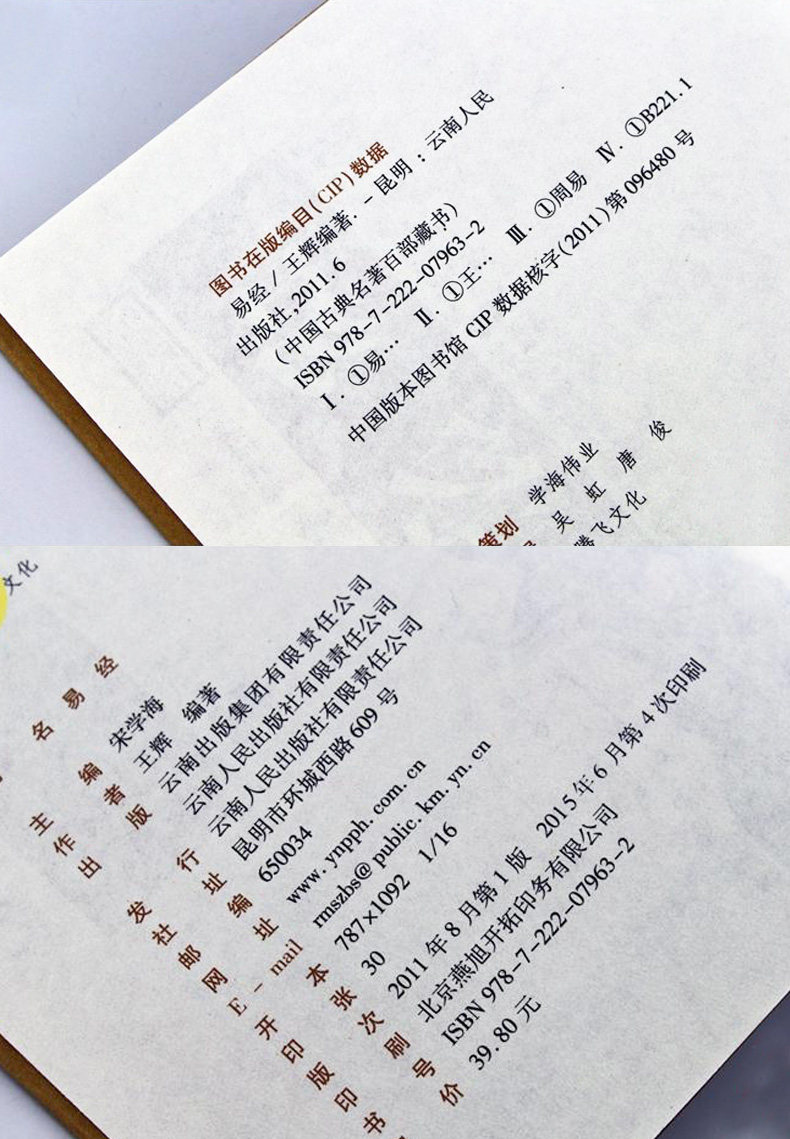 图书在版编目(CIP)数据
易经/王辉编著.-昆明:云南人民
出版社,2011.6
(中国古典名著百部藏书)
ISBN 978-7-222-07963-2
Ⅰ.①易… Ⅱ.①王… Ⅲ.①周易 Ⅳ.①B221.1
中国版本图书馆CIP数据核字(2011)第096480号
策划 学海伟业
吴虹 唐俊
腾飞文化
文化
名 易经
主编 宋学海
作者 王辉 编著
出版 云南出版集团有限责任公司
云南人民出版社有限责任公司
发行 云南人民出版社有限责任公司
社址 昆明市环城西路609号
邮编 650034
网址 www.ynpph.com.cn
E-mail rmszbs@public.km.yn.cn
开本 787×1092 1/16
印张 30
版次 2011年8月第1版 2015年6月第4次印刷
印刷 北京燕旭开拓印务有限公司
书号 ISBN 978-7-222-07963-2
价 39.80元